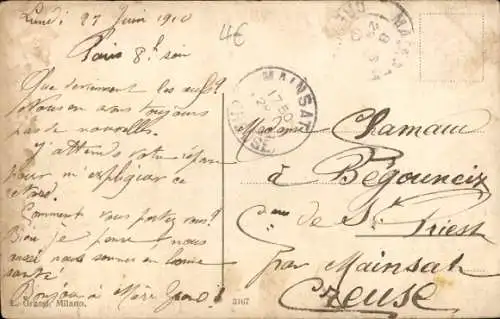 Lundi 27 Juin 1910
4€
Paris 8h soir
Que deviennent les
Nous en avons toujours
pas de nouvelles.
J'attends votre
pour m'expliquer ce
retard.
Comment vous portez vous?
Bien je pense nous
aussi nous sommes en bonne
santé!
Bonjour à Mère
MAINSAT
CREUSE
MAINSAT
Madame Chamau
à Bégouneix
Cne de St Priest
par Mainsat
Creuse
E. Grassi, Milano.
3167